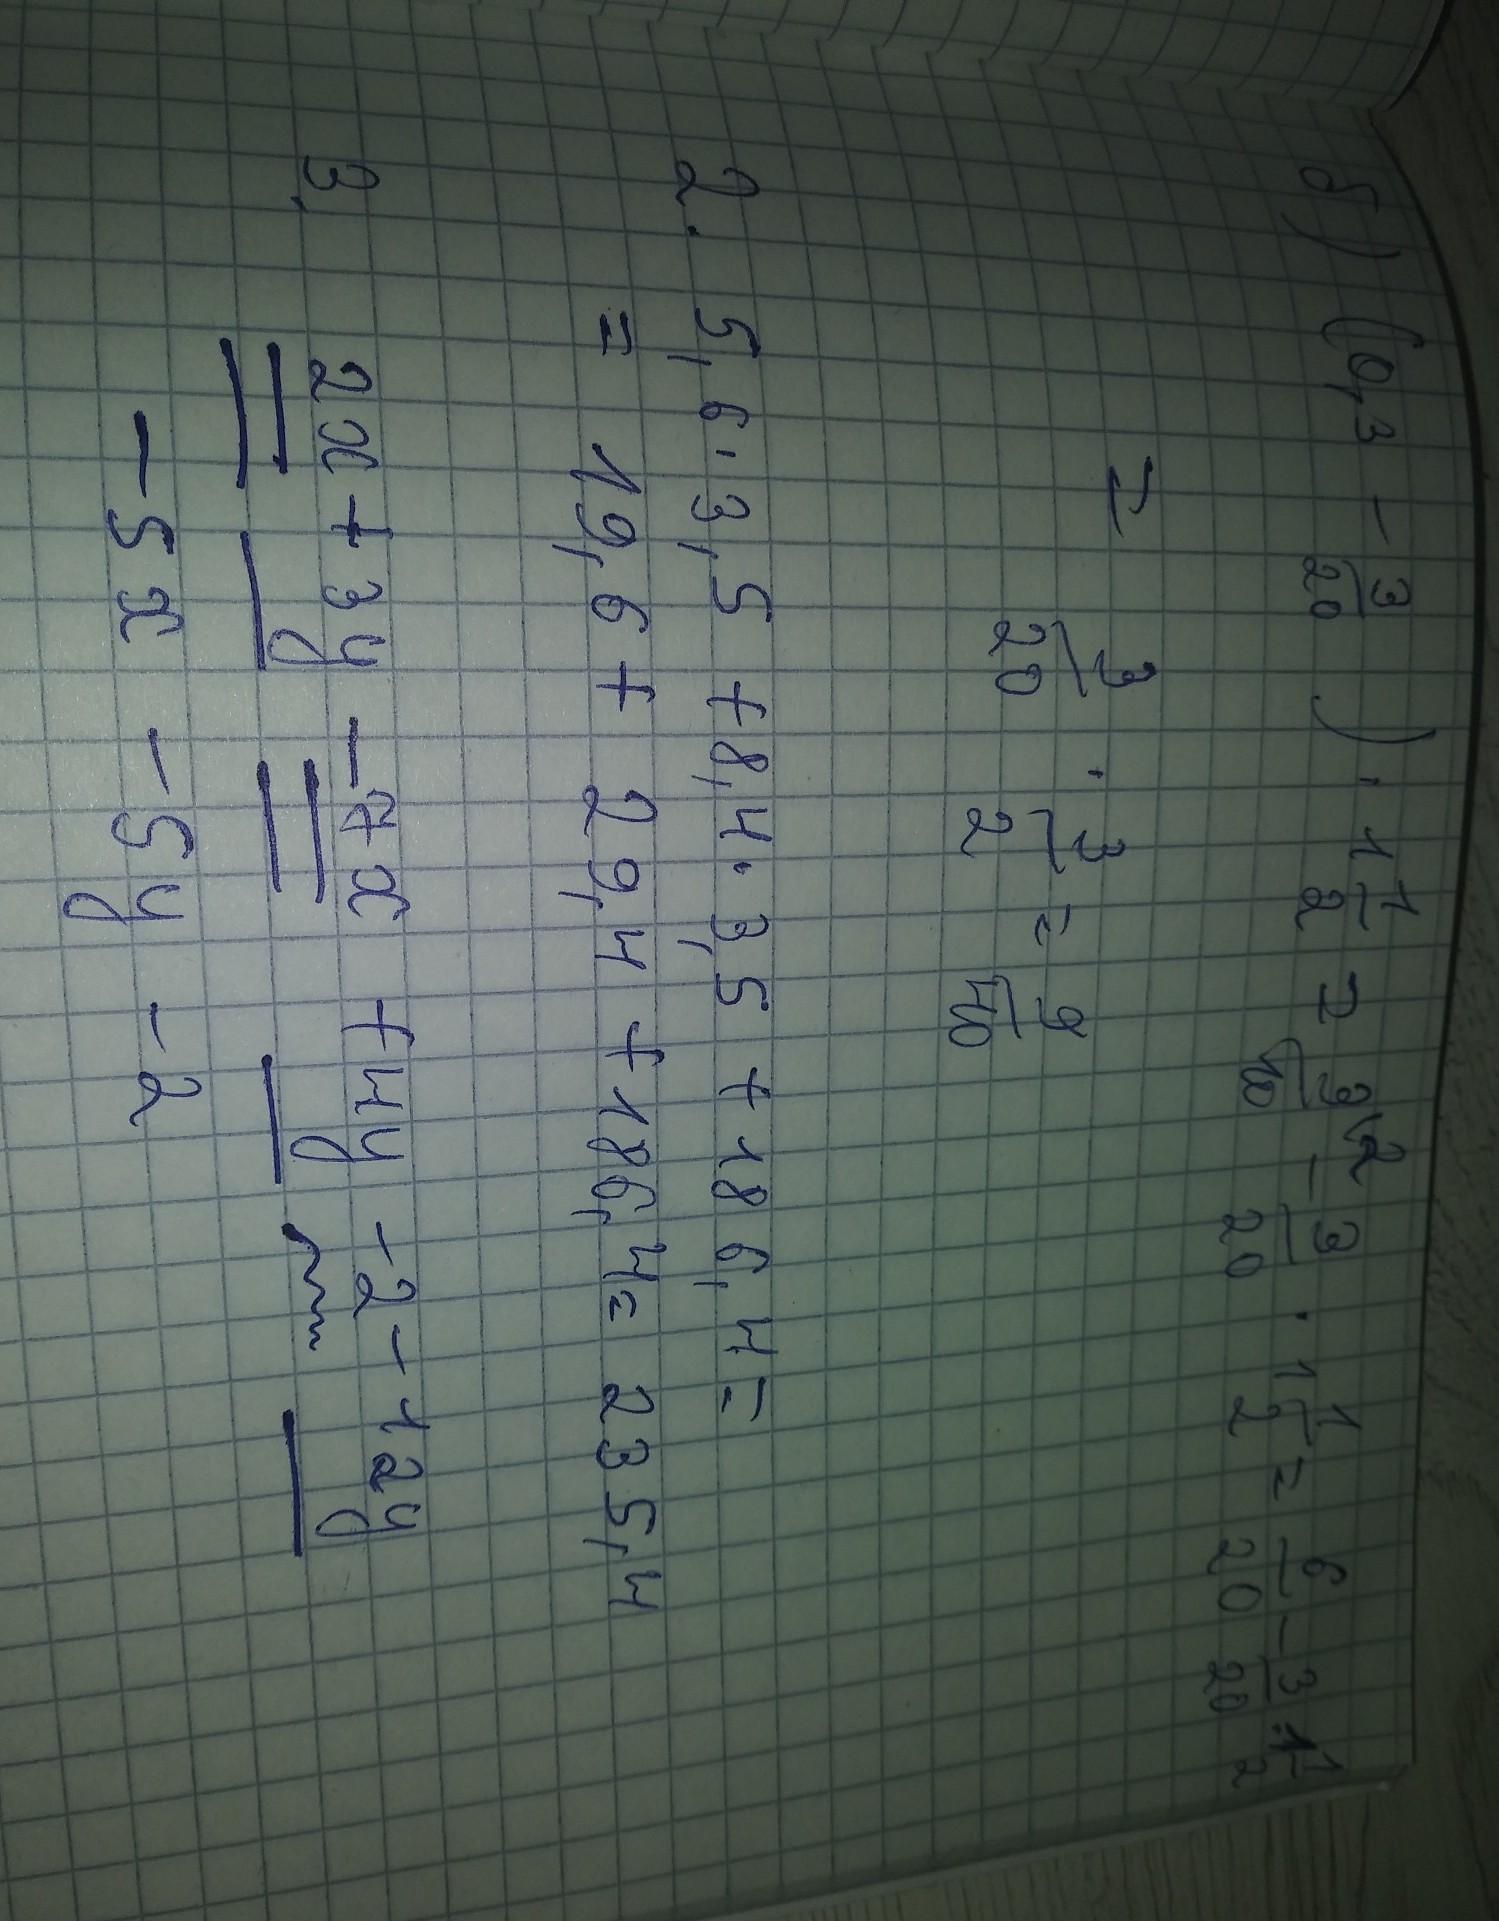 б) (0,3 - 3/20) · 1 1/2 = 3\2/10 - 3/20 · 1 1/2 = 6/20 - 3/20 · 1 1/2
= 3/20 · 3/2 = 9/40
2. 5,6 · 3,5 + 8,4 · 3,5 + 186,4 =
= 19,6 + 29,4 + 186,4 = 235,4
3. 2x + 3y - 7x + 4y - 2 - 12y
- 5x - 5y - 2